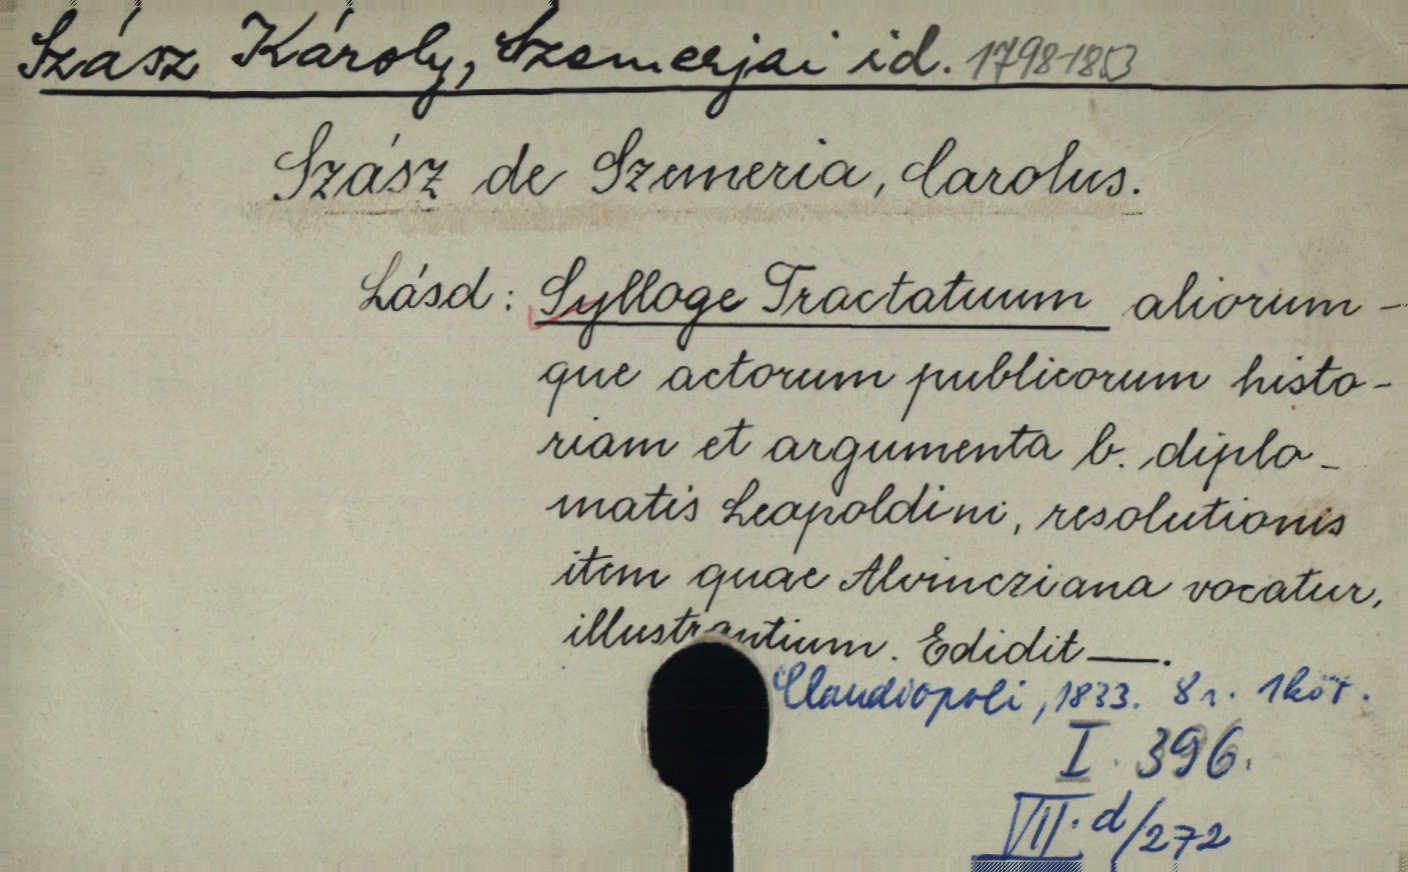 Szász Károly, Szemerjai id. 1798-1853
Szász de Szemeria, Carolus.
Lásd: Sylloge Tractatuum aliorum-
que actorum publicorum histo-
riam et argumenta b. diplo-
matis Leopoldini, resolutionis
item quae Alvincziana vocatur,
illustrantium. Edidit —.
Claudiopoli, 1833. 8r. 1köt.
I. 396.
VII. d/272